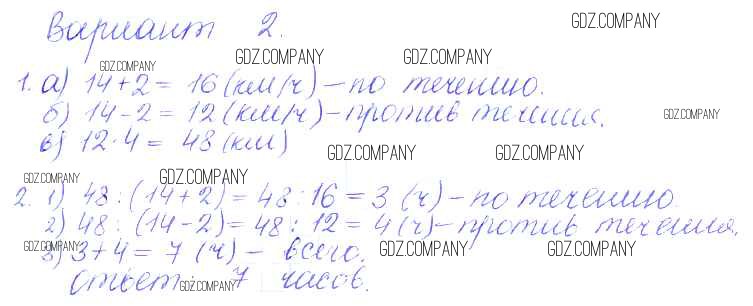 Вариант 2.
GDZ.COMPANY
GDZ.COMPANY GDZ.COMPANY GDZ.COMPANY
1. а) 14+2 = 16 (км/ч) – по течению.
б) 14-2 = 12 (км/ч) – против течения.
GDZ.COMPANY
в) 12·4 = 48 (км)
GDZ.COMPANY GDZ.COMPANY
GDZ.COMPANY GDZ.COMPANY
2. 1) 48 : (14+2) = 48 : 16 = 3 (ч) – по течению.
2) 48 : (14-2) = 48 : 12 = 4 (ч) – против течения.
GDZ.COMPANY GDZ.COMPANY GDZ.COMPANY
3) 3+4 = 7 (ч) – всего.
Ответ: 7 часов.
GDZ.COMPANY